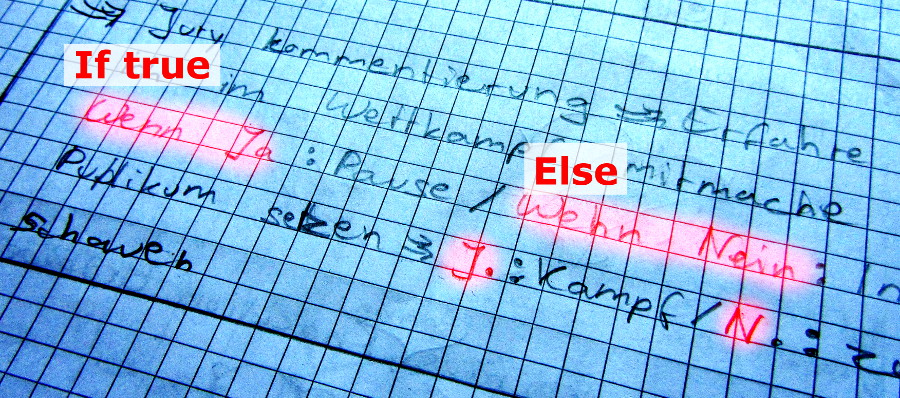 ⇒ Jury kommentierung ⇒ Erfahre
If true
im Wettkampf mitmache
Else
Wenn Ja : Pause / Wenn Nein : In
Publikum setzen ⇒ J. : Kampf / N. : zu
schauen